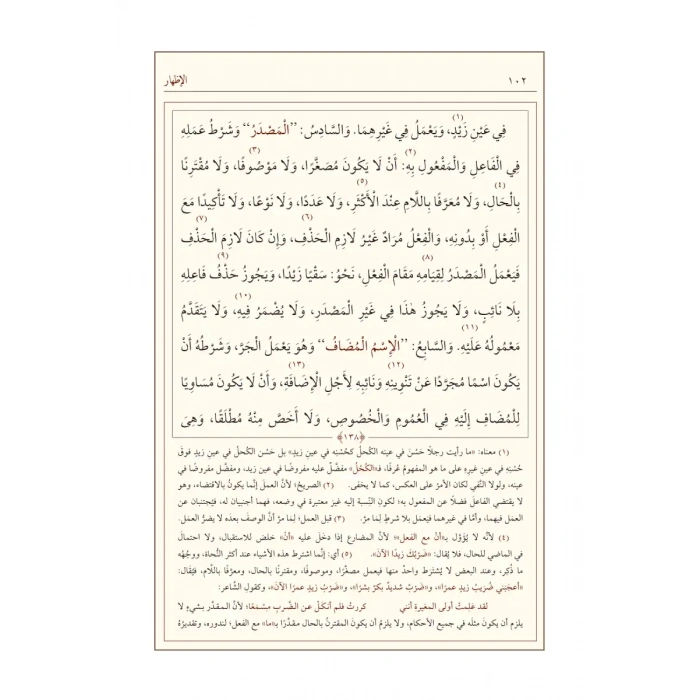 ١٠٢ الإظهار
فِي عَيْنِ زَيْدٍ، وَيَعْمَلُ فِي غَيْرِهِمَا. (١) وَالسَّادِسُ: ‘‘الْمَصْدَرُ‘‘ وَشَرْطُ عَمَلِهِ
فِي الْفَاعِلِ وَالْمَفْعُولِ بِهِ: (٢) أَنْ لَا يَكُونَ مُصَغَّرًا، وَلَا مَوْصُوفًا، (٣) وَلَا مُقْتَرِنًا
بِالْحَالِ، (٤) وَلَا مُعَرَّفًا بِاللَّامِ عِنْدَ الْأَكْثَرِ، (٥) وَلَا عَدَدًا، وَلَا نَوْعًا، وَلَا تَأْكِيدًا مَعَ
الْفِعْلِ أَوْ بِدُونِهِ، وَالْفِعْلُ مُرَادٌ غَيْرُ لَازِمِ الْحَذْفِ، (٦) وَإِنْ كَانَ لَازِمَ الْحَذْفِ (٧)
فَيَعْمَلُ الْمَصْدَرُ لِقِيَامِهِ مَقَامَ الْفِعْلِ، (٨) نَحْوُ: سَقْيًا زَيْدًا، وَيَجُوزُ حَذْفُ فَاعِلِهِ (٩)
بِلَا نَائِبٍ، وَلَا يَجُوزُ هٰذَا فِي غَيْرِ الْمَصْدَرِ، وَلَا يُضْمَرُ فِيهِ، (١٠) وَلَا يَتَقَدَّمُ
مَعْمُولُهُ عَلَيْهِ. (١١) وَالسَّابِعُ: ‘‘الْاِسْمُ الْمُضَافُ‘‘ وَهُوَ يَعْمَلُ الْجَرَّ، وَشَرْطُهُ أَنْ
يَكُونَ اسْمًا مُجَرَّدًا عَنْ تَنْوِينِهِ (١٢) وَنَائِبِهِ لِأَجْلِ الْإِضَافَةِ، (١٣) وَأَنْ لَا يَكُونَ مُسَاوِيًا
لِلْمُضَافِ إِلَيْهِ فِي الْعُمُومِ وَالْخُصُوصِ، وَلَا أَخَصَّ مِنْهُ مُطْلَقًا، وَهِيَ
﴿١٣٨﴾
(١) معناه: «ما رأيت رجلًا حَسُنَ في عينه الكُحلُ كحُسْنِه في عينِ زيدٍ» بل حَسُنَ الكُحلُ في عينِ زيدٍ فوقَ
حُسْنِه في عينِ غيرِه على ما هو المفهومُ عُرفًا، فـ«الكُحْلُ» مفضّل عليه مفروضًا في عين زيد، ومفضّل مفروضًا في
عينه، ولولا النّفي لكان الأمرُ على العكس، كما لا يخفى. (٢) الصريحُ؛ لأنّ العملَ إنّما يكونُ بالاقتضاء، وهو
لا يقتضي الفاعلَ فضلًا عن المفعول به؛ لكونِ النِّسبة إليه غيرَ معتبرة في وضعه، فهما أجنبيان له، فيُجتنبان عن
العمل فيهما، وأمّا في غيرهما فيَعمَل بلا شرطٍ لِمَا مرّ. (٣) قبل العمل؛ لِمَا مرّ أنّ الوصفَ بعدَه لا يضرُّ العملَ.
(٤) لأنّه لا يُؤوَّل بـ«أنْ مع الفعل»؛ لأنّ المضارع إذا دخل عليه «أنْ» خلص للاستقبال، ولا احتمالَ
في الماضي للحال، فلا يُقال: «ضَرْبُكَ زيدًا الآنَ». (٥) أي: إنّما اشترط هذه الأشياء عند أكثر النُّحاة، ووجهُه
ما ذُكِر، وعند البعض لا يُشترَط واحدٌ منها فيعمل مصغّرًا، وموصوفًا، ومقترنًا بالحال، ومعرفًا باللّام، فيُقال:
«أعجبَني ضُرَيبُ زيدٍ عمرًا»، و«ضَرْبٌ شديدٌ بكرٌ بشرًا»، و«ضَرْبُ زيدٍ عمرًا الآنَ»، وكقولِ الشّاعر:
لقد عَلِمتْ أولى المغيرةِ أنني كررتُ فلم أنكُلْ عن الضَّربِ مِسْمَعًا؛ لأنّ المقدَّر بشيءٍ لا
يلزم أن يكونَ مثلَه في جميع الأحكام، ولا يلزمُ أن يكونَ المقترنُ بالحال مقدَّرًا بـ«ما» مع الفعل؛ لندوره، وتقديرُه